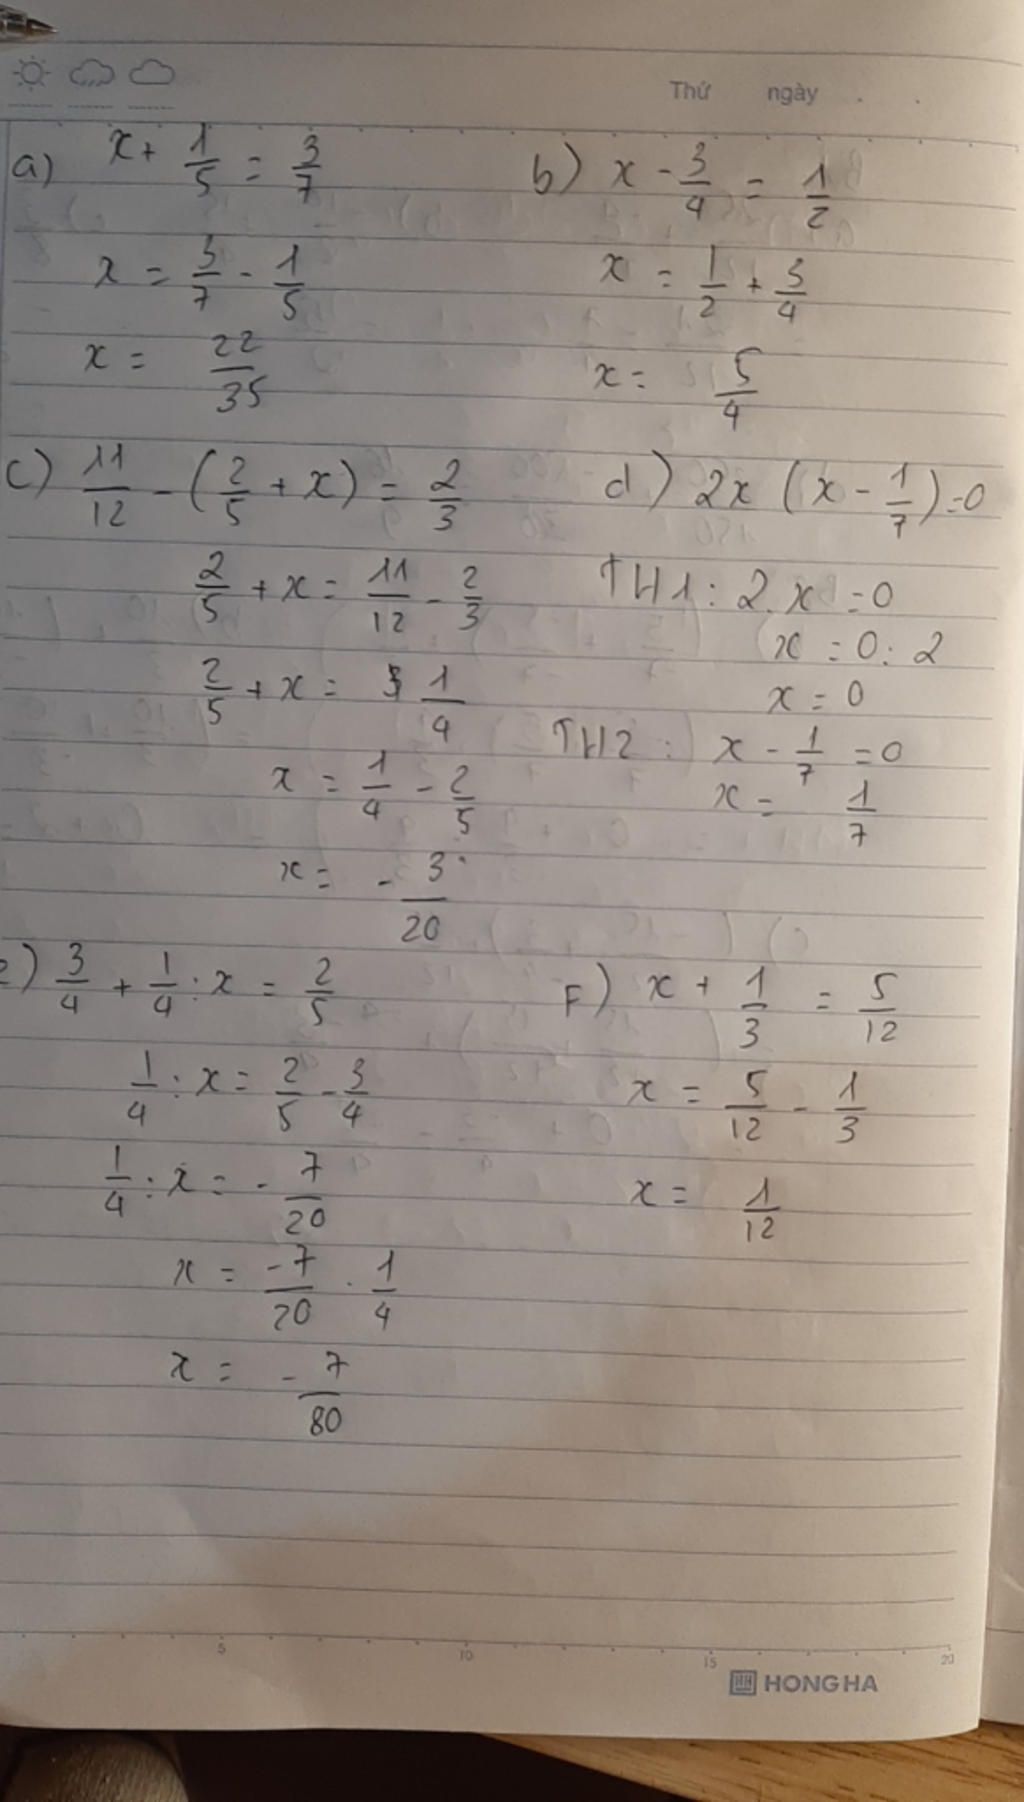 Thứ ngày
a) x + 1/5 = 3/7
x = 3/7 - 1/5
x = 22/35
b) x - 3/4 = 1/2
x = 1/2 + 3/4
x = 5/4
c) 11/12 - (2/5 + x) = 2/3
2/5 + x = 11/12 - 2/3
2/5 + x = 1/4
x = 1/4 - 2/5
x = - 3/20
d) 2x (x - 1/7) = 0
TH1: 2.x = 0
x = 0 : 2
x = 0
TH2: x - 1/7 = 0
x = 1/7
e) 3/4 + 1/4 : x = 2/5
1/4 : x = 2/5 - 3/4
1/4 : x = - 7/20
x = -7/20 . 1/4
x = - 7/80
F) x + 1/3 = 5/12
x = 5/12 - 1/3
x = 1/12
5 10 15 20
HH HONG HA